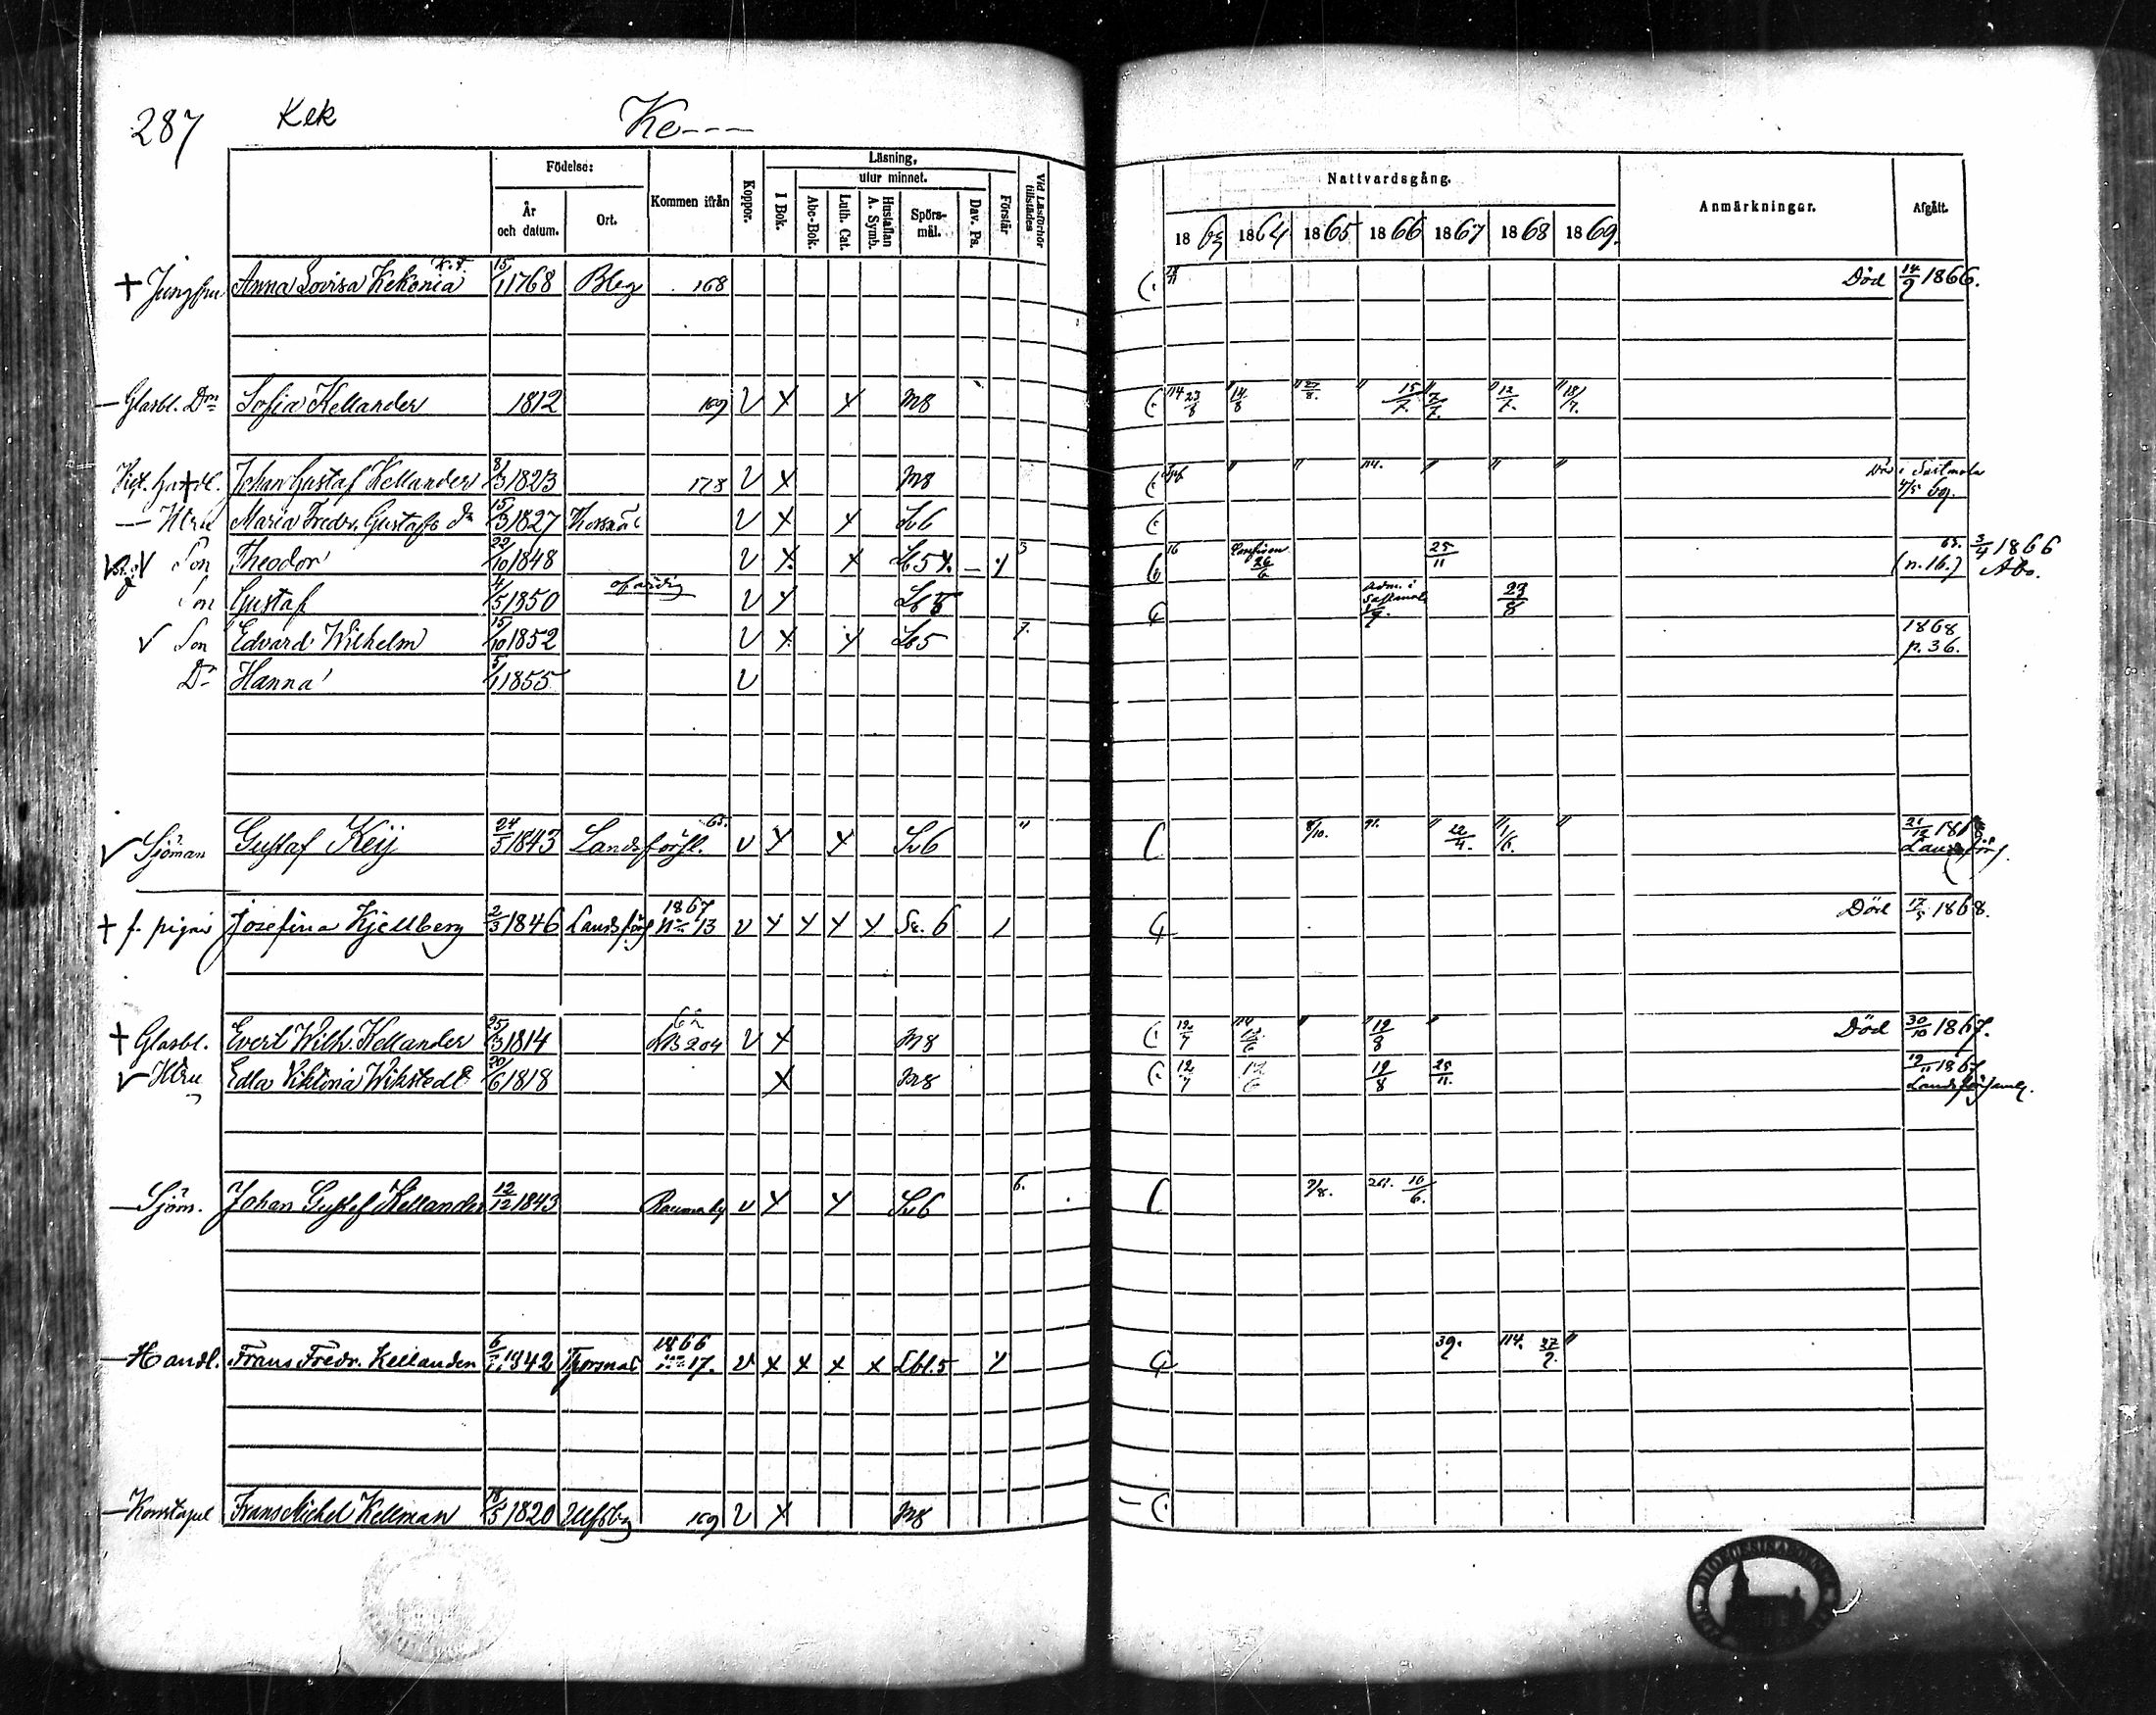 287 Kek Ke---
Födelse: Läsning, utur minnet.
År och datum. Ort. Kommen ifrån Koppor. I Bok. Abc-Bok. Luth. Cat. Hustaflan A. Symb. Spörsmål. Dav. Ps. Förstår Vid Läsförhör tillstädes
Nattvardsgång. Anmärkningar. Afgått.
1863 1864 1865 1866 1867 1868 1869.
+ Jungfru Anna Lovisa Kekonia 15/1 1768 Bleg 168 Död 14/9 1866.
— Glasbl. Dr Sofia Kellander 1812 169 V X X M8 114 23/8 " 14/8 " 27/8. " 15/7. " 7/7. " 12/7. " 18/7.
Johan Gustaf Kellander 8/3 1823 178 V X M8 " " 114. " " " i Sastmola
— Hru Maria Fredr. Gustafs dr 15/3 1827 V X X Lb6
Son Theodor 22/10 1848 V X X Lb5 — 5 16 26/6 25/11 65. 3/4 1866
(n. 16.) Åbo.
Son Gustaf 4/5 1850 ofärdig V X Lb5 Adm. i Sastmola 23/8
V Son Edvard Wilhelm 15/10 1852 V X X Lb5 7. 1868
p. 36.
Dr Hanna 5/1 1855 V
V Sjöman Gustaf Keij 24/3 1843 Landsförsl. 65. V X X Sv6 " 8/10. 91. " 22/4. " 1/6. " 21/12 1868
Landsförs.
+ f. pigan Josefina Kjellberg 2/3 1846 Landsförs 1867 No 13 V X X X X Sv. 6 / Död 17/5 1868.
+ Glasbl. Evert Wilh. Kellander 25/3 1814 62 NB 204 V X M8 12/7 114 12/6 " " 12/8 " Död 30/10 1867.
V Hru Edla Viktoria Wikstedt 20/6 1818 X M8 12/7 12/6 12/8 25/11. 19/11 1867
Landsförsaml.
— Sjöm. Johan Gustef Kellander 12/12 1843 Raumoby V X X Sv6 6. 7/8. 261. 10/6.
— Handl. Frans Fredr. Kellander 6/7. 1842 1866 17. V X X X X Lbl. 5 39. 114. "
— Konstapel Frans Michel Kellman 18/5 1820 Ulfsby 169 V X M8